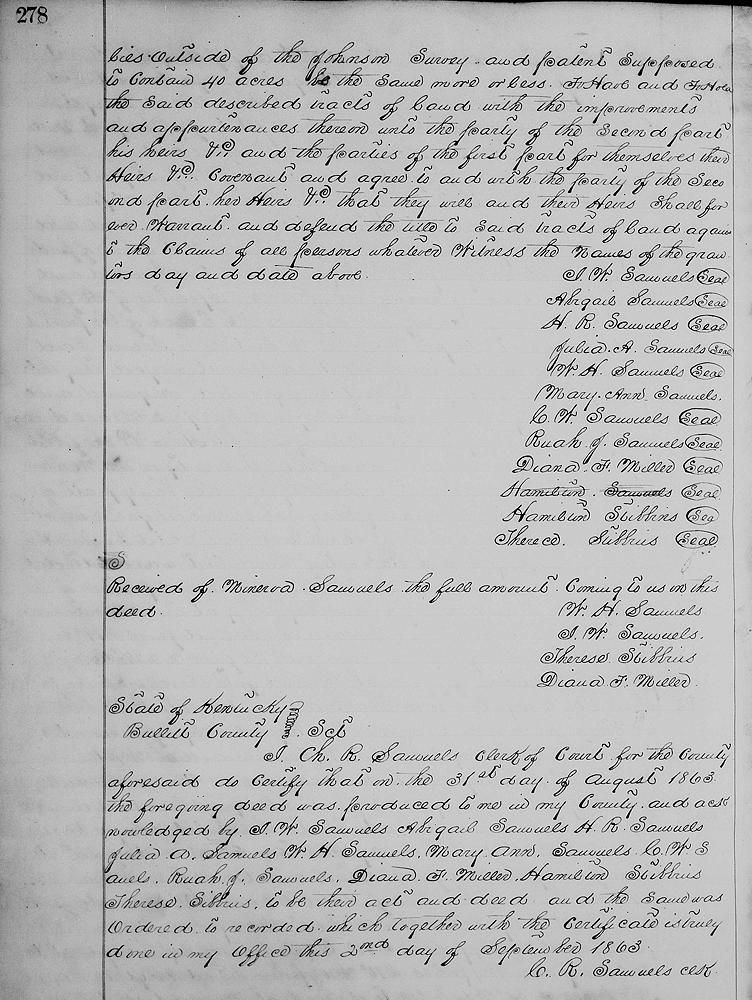 278
lies outside of the Johnson Survey and patent Supposed
to Contain 40 acres be the Same more or less. To Have and To Hold
the Said described tracts of land with the improvements
and appurtenances thereon unto the party of the Second part
his heirs &c. and the parties of the first part for themselves their
Heirs &c. Covenant and agree to and with the party of the Seco
ond part. her Heirs &c. that they will and their Heirs Shall for
ever Warrant and defend the title to Said tracts of land again
t the Claims of all persons whatever Witness the Names of the gran
tors day and date above.
I. W. Samuels Seal
Abigail Samuels Seal
H. R. Samuels Seal
Julia A. Samuels Seal
W. H. Samuels Seal
Mary Ann Samuels.
C. W. Samuels Seal
Ruah J. Samuels Seal
Diana F. Miller Seal
Hamilton Samuels Seal
Hamilton Stibbins Sea
Thereca. Stibbins Seal
S
Received of Minerva Samuels the full amount Coming to us on this
deed.
W. H. Samuels
I. W. Samuels.
Therese Stibbins
Diana F. Miller
State of Kentucky
Bullitt County Sct
I. Ch. R. Samuels Clerk of Court for the County
aforesaid do Certify that on the 31st day of August 1863
the foregoing deed was produced to me in my County and ack
nowledged by I. W. Samuels Abigail Samuels H. R. Samuels
Julia A. Samuels W. H. Samuels, Mary Ann, Samuels C. W S
auels, Ruah J. Samuels, Diana F. Miller, Hamilton Stibbins
Therese Sibbins, to be their act and deed and the Same was
Ordered to recorded which together with the Certificate is truly
done in my Office this 2nd day of September 1863.
C. R. Samuels clk